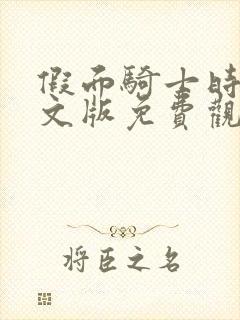 假面騎士時
文版免費觀
将臣之名